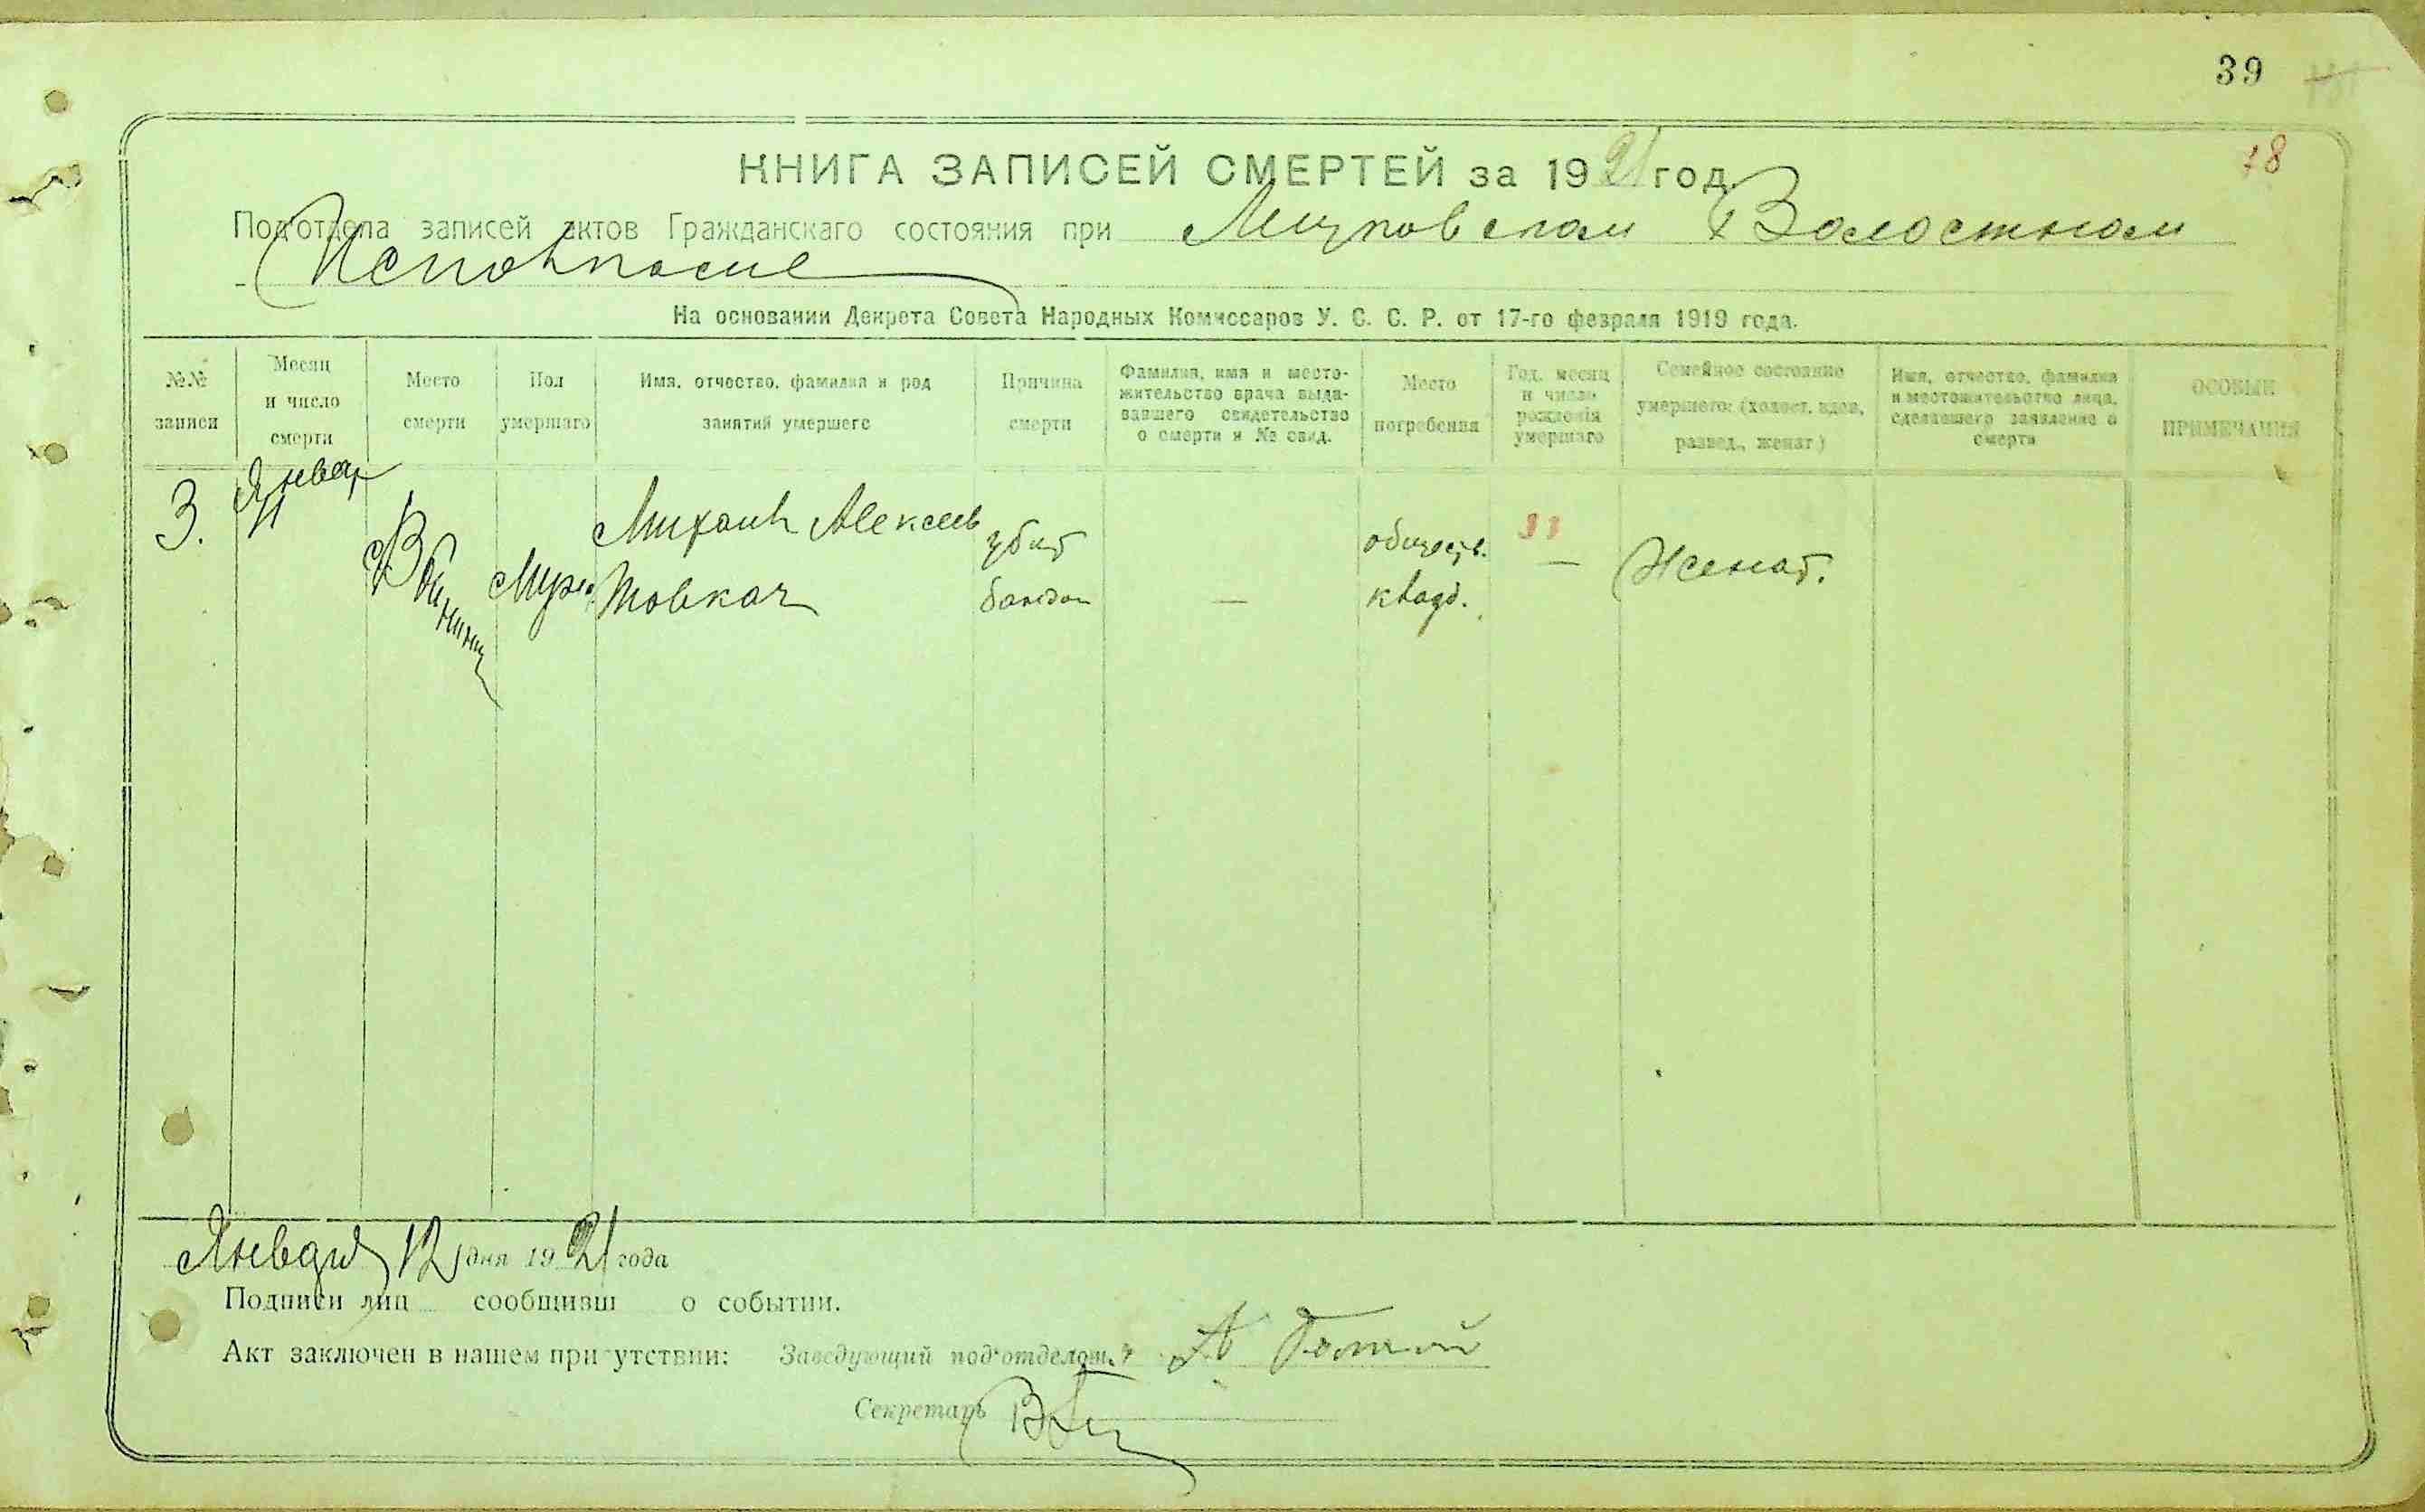 39
78
КНИГА ЗАПИСЕЙ СМЕРТЕЙ за 1921 год
Подотдела записей актов Гражданскаго состояния при Волостном
Исполкоме
На основании Декрета Совета Народных Комиссаров У. С. С. Р. от 17-го февраля 1919 года.
№№ записи
Месяц и число смерти
Место смерти
Пол умершаго
Имя, отчество, фамилия и род занятий умершего
Причина смерти
Фамилия, имя и местожительство врача выдавшего свидетельство о смерти и № свид.
Место погребения
Год, месяц и число рождения умершаго
Семейное состояние умершего: (холост, вдов, развед., женат)
Имя, отчество, фамилия и местожительство лица, сделавшего заявление о смерти
ОСОБЫЕ ПРИМЕЧАНИЯ
3.
Январ
11
Муж.
Михаил Алексеев
Товкач
убит
—
обществ.
кладб.
33
—
Женат.
Января 12 дня 1921 года
Подписи лиц сообщивш о событии.
Акт заключен в нашем присутствии: Заведующий под'отделом
Секретарь